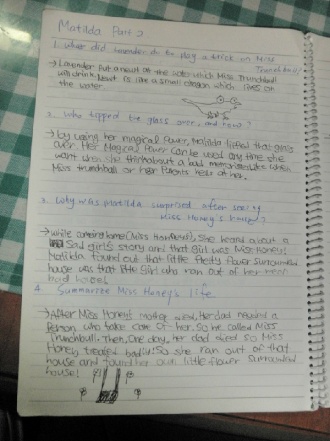 Matilda Part 2
1. What did lavender do to play a trick on Miss
Trunchbull?
→ Lavender Put a newt on the water which Miss Trunchbull
will drink. Newt is like a small dragon which lives on
the water.
2. Who tipped the glass over, and how?
→ by using her magical Power, Matilda lifted that glass
over. Her Magical Power can be used any time she
want when she think about a bad memories like when
Miss trunchbull or her Parents held at her.
3. Why was Matilda surprized after seeing
Miss Honey's house?
→ while coming home (Miss Honey's), she heard about a
Sad girl's story and that girl was Miss Honey!
Matilda found out that little flower surround
house was that little Girl who ran out of her
bad house.
4. Summarize Miss Honey's life
→ After Miss Honey's mother died, Her dad needed a
Person who take care of her. So he called Miss
Trunchbull. Then, One day, her dad died so Miss
Honey treated badly! So she ran out of that
house and found her own little flower surround
house!